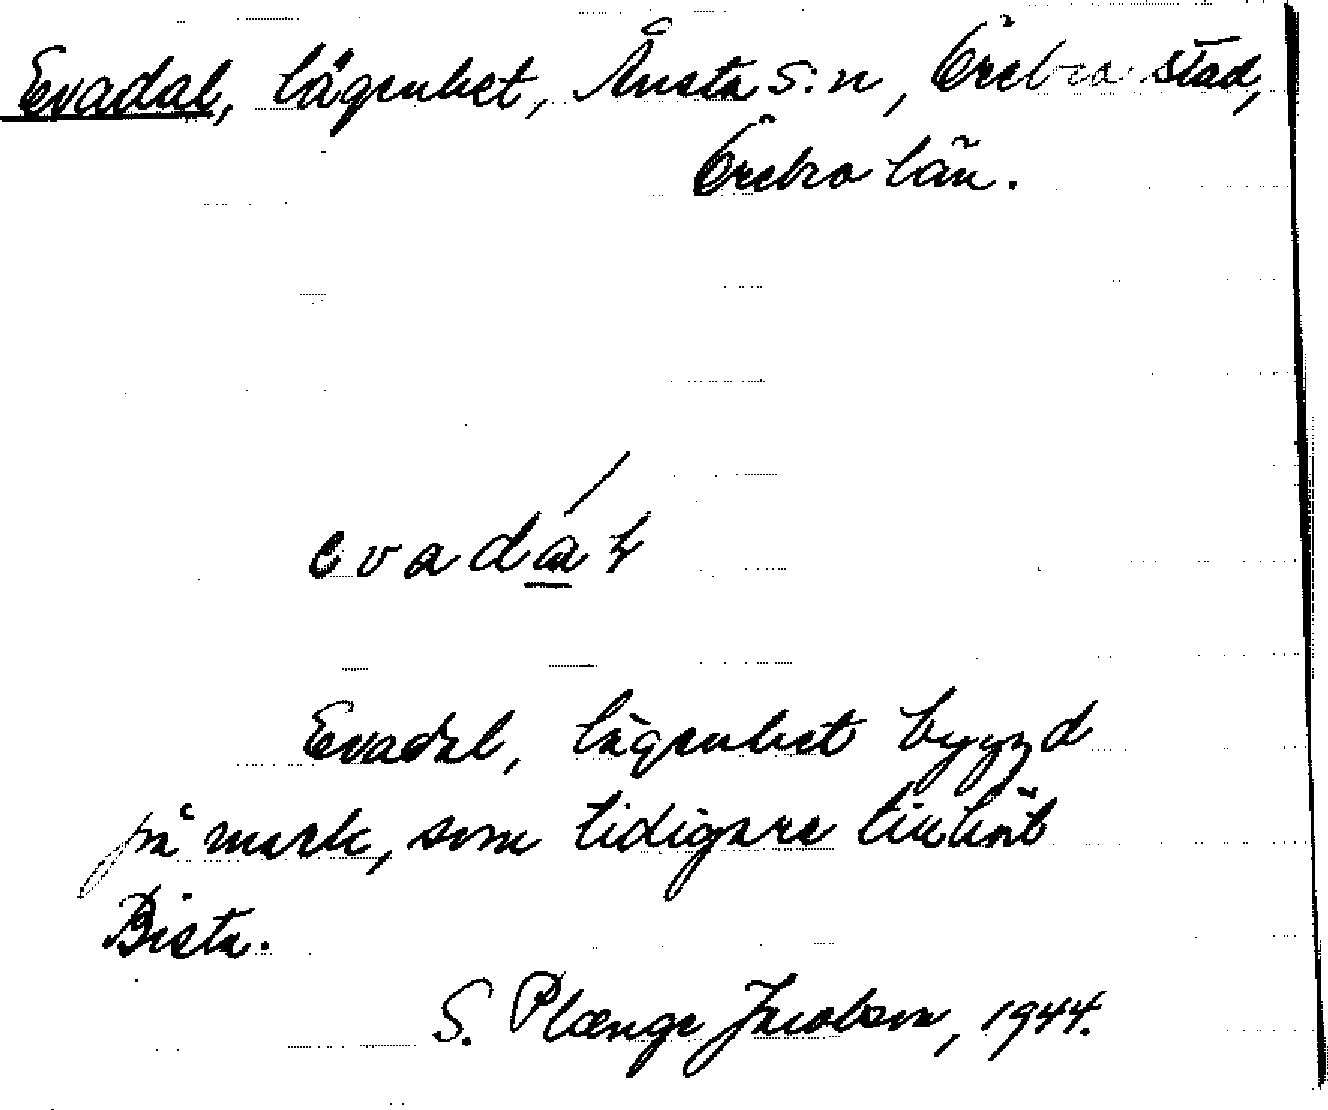 Evadal, lägenhet, Ånsta s:n, Örebro stad,
Örebro län.
evadát
Evadal, lägenhet byggd
på mark, som tidigare tillhört
Bista.
S. Plænge Jacobson, 1944.